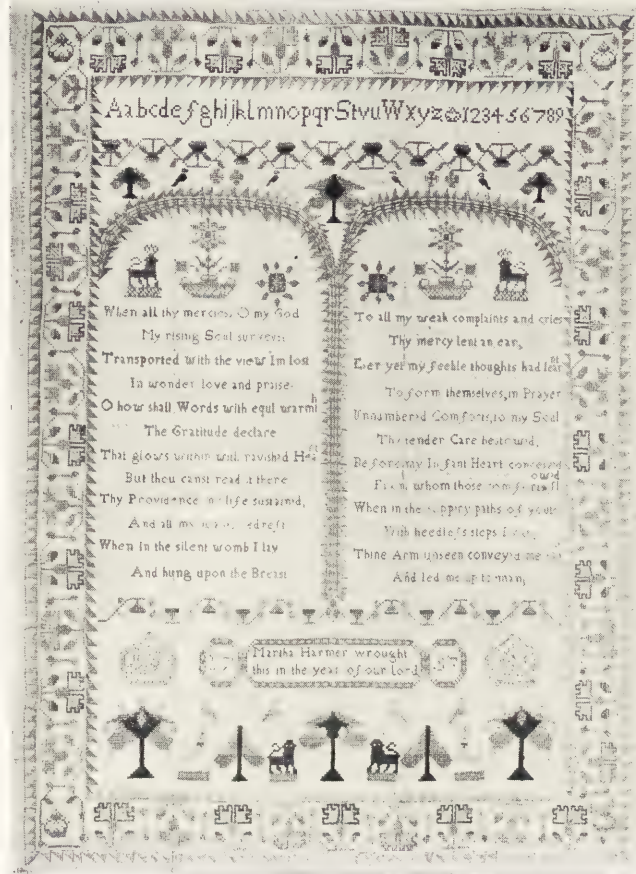 AabcdefghijklmnopqrStvuWxyz&123456789
When all thy mercies, O my God
My rising Soul
Transported with the view Im lost
In wonder love and praise
O how shall Words with equl warmth
The Gratitude declare
That glows within ravished
But thou canst read it there
Thy Providence life sustained,
And all my
When in the silent womb I lay
And hung upon the Breast
To all my weak complaints and cries
Thy mercy lent an ear,
Ever yet my feeble thoughts had
To form themselves, in Prayer
Unnumbered Comforts, to my Soul
Thy tender Care bestowed,
Before my Infant Heart conceived
From whom those
When in the paths of
With heedless steps I
Thine Arm unseen conveyed me
And led me up to man,
Martha Harmer wrought
this in the year of our lord